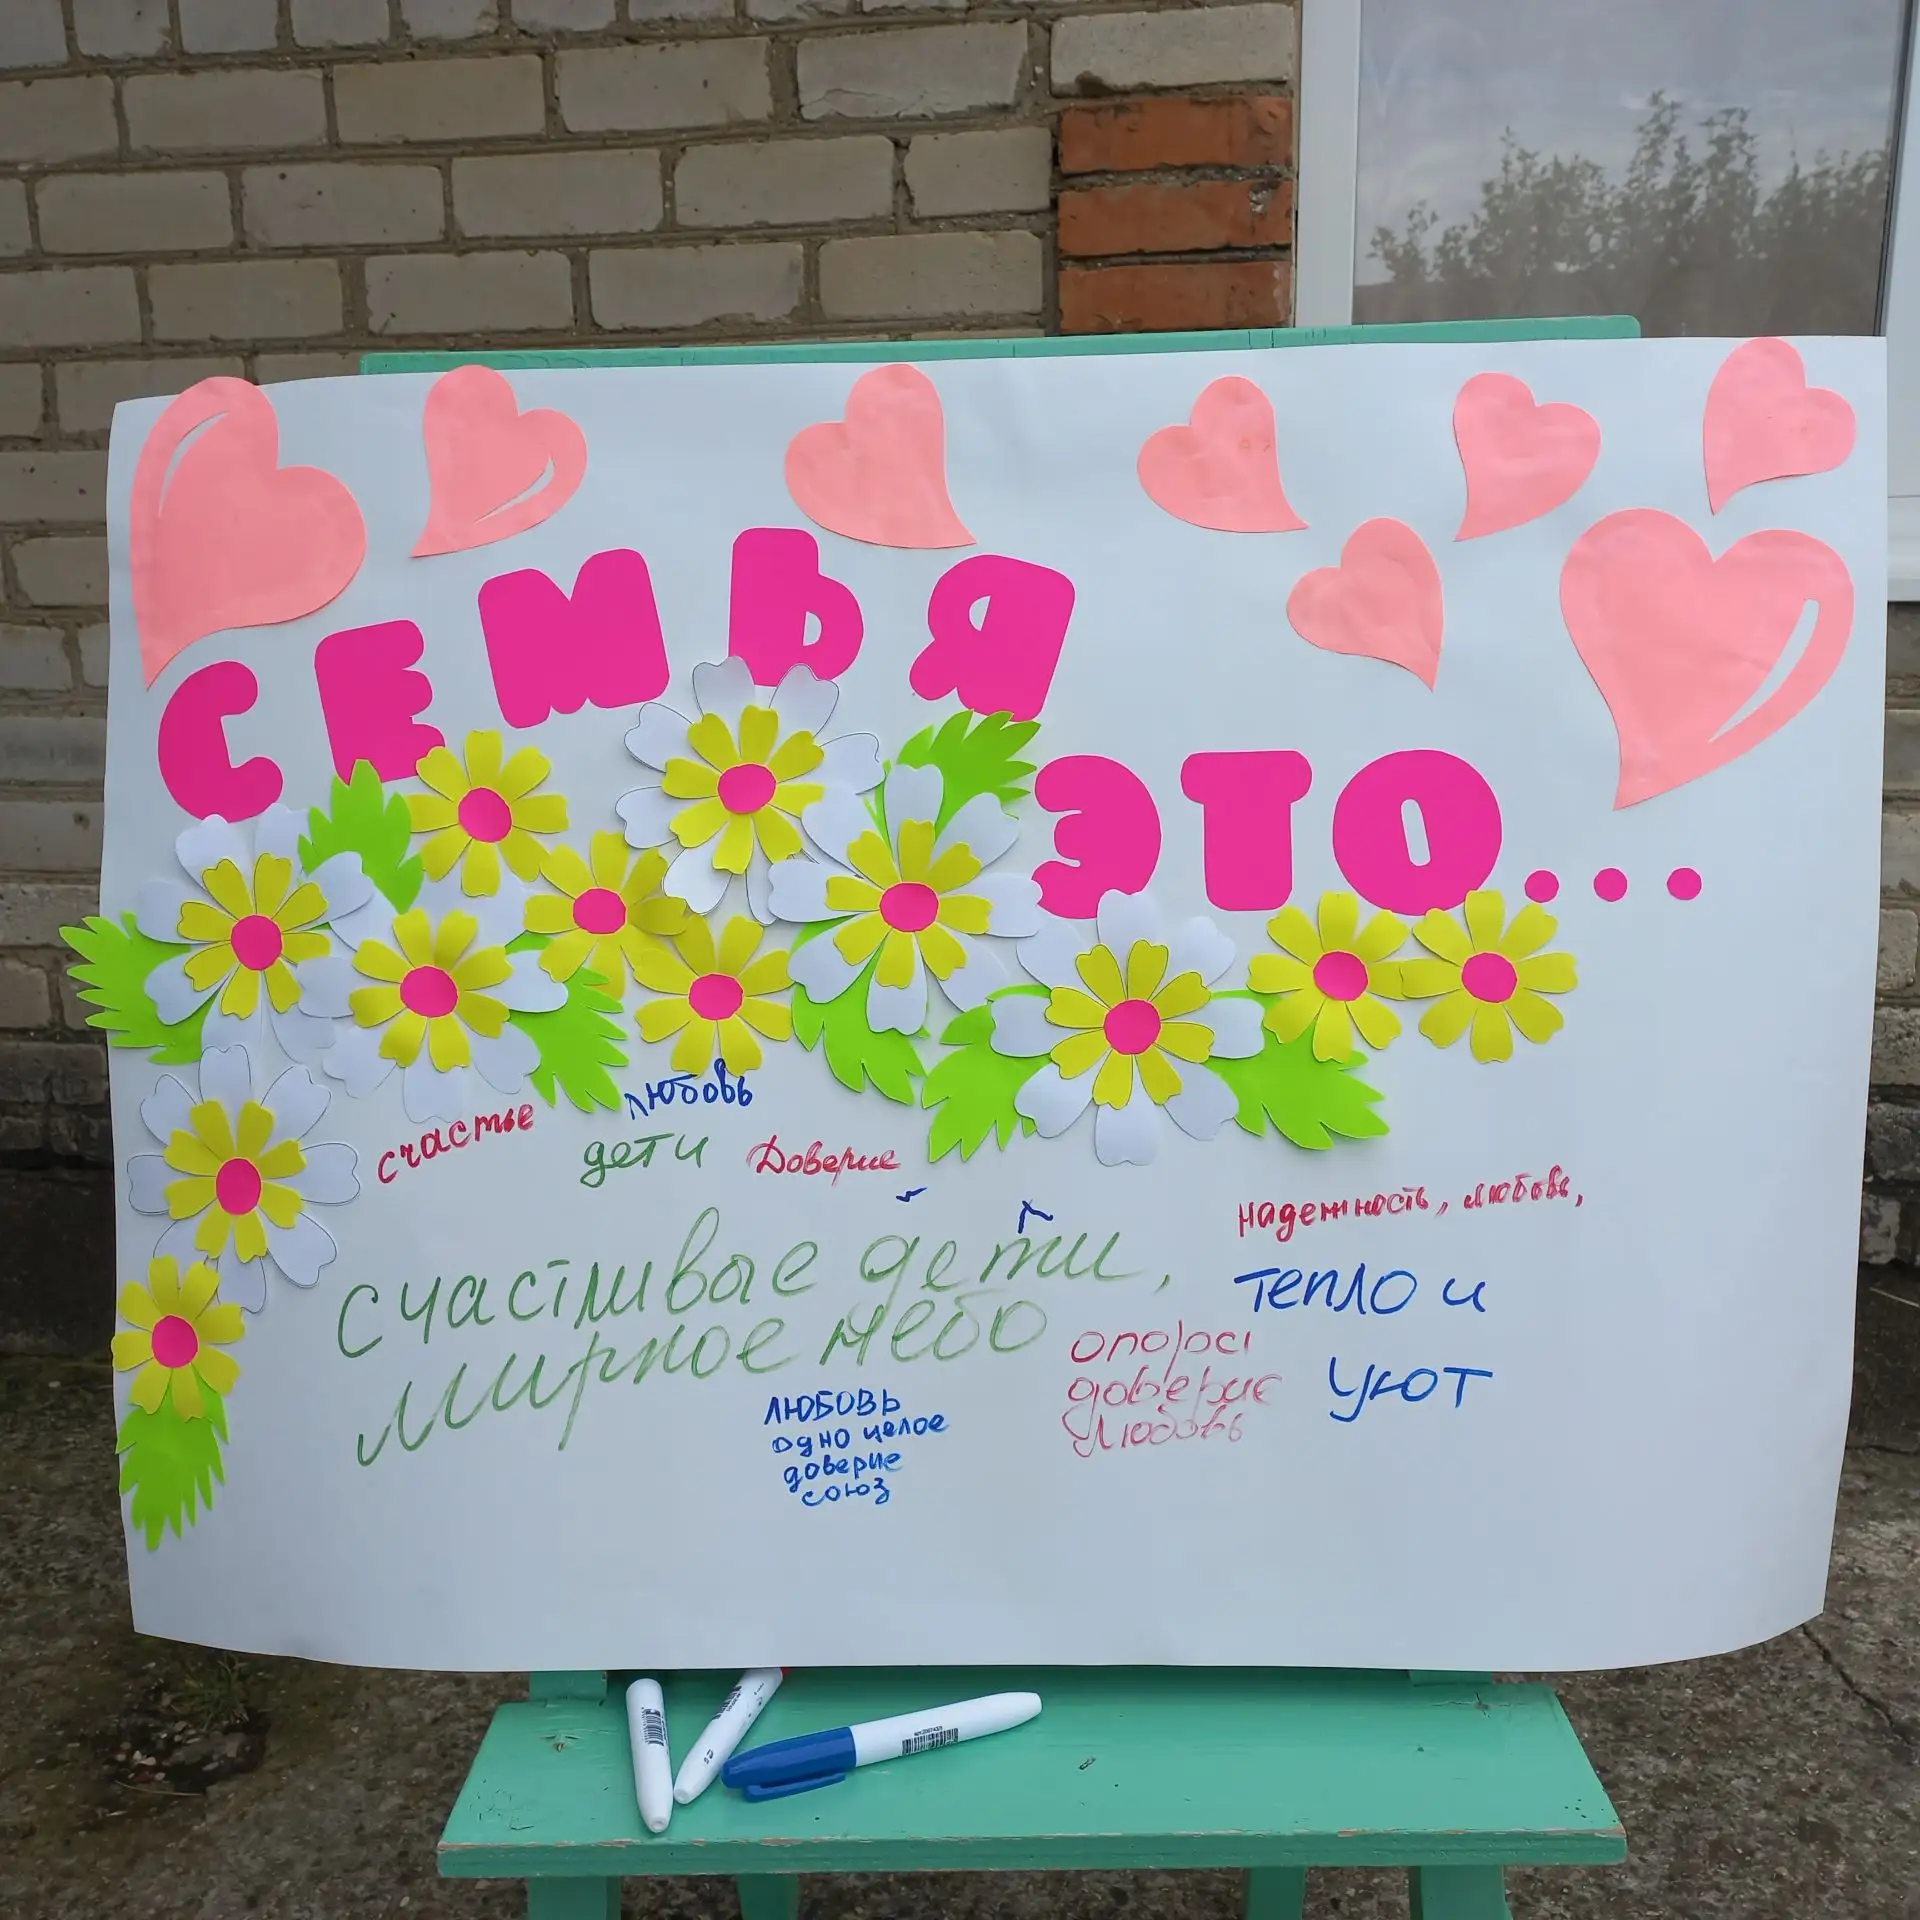 СЕМЬЯ
ЭТО...
любовь
счастье
дети
Доверие
счастливые дети,
мирное небо
надежность, любовь,
тепло и
уют
опора
доверие
любовь
ЛЮБОВЬ
одно целое
доверие
союз